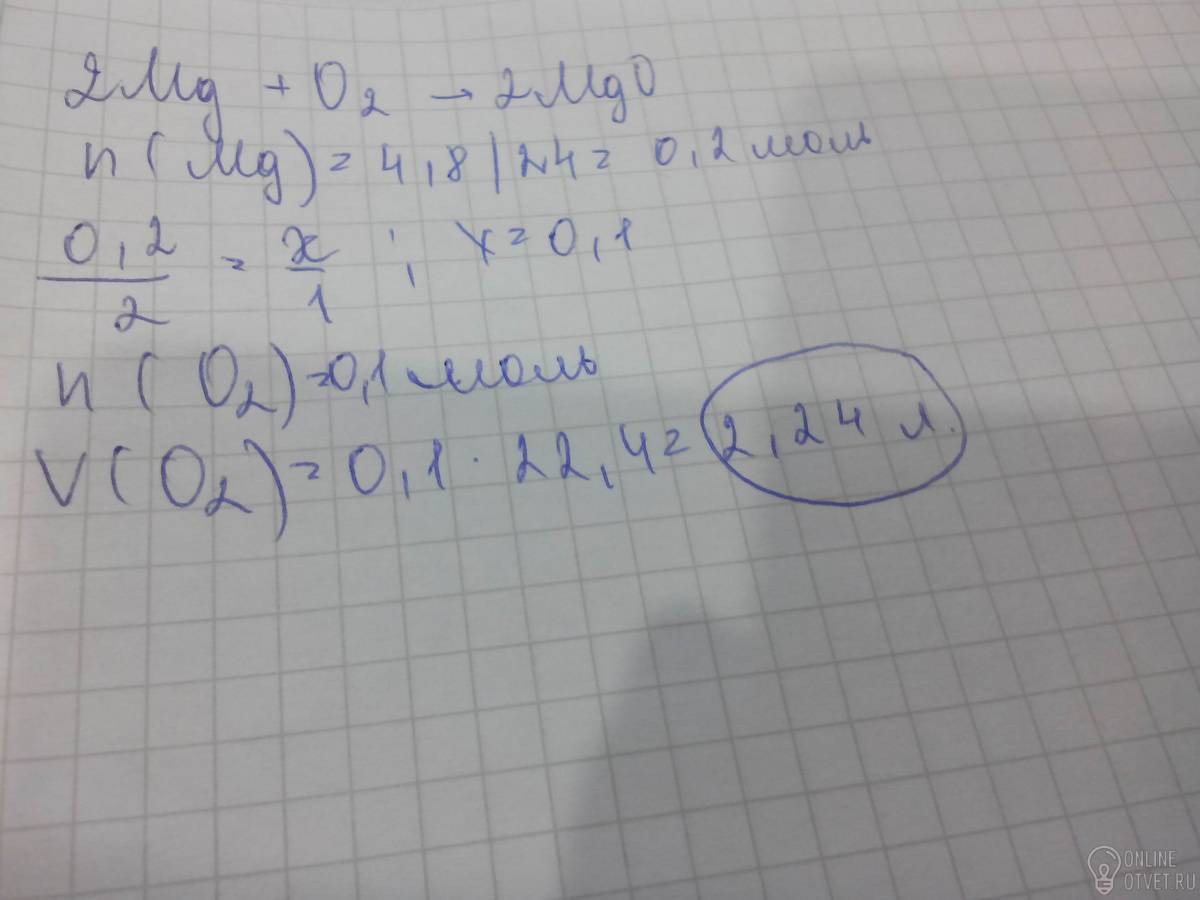 2Mg + O₂ → 2MgO
n(Mg) = 4,8 | 24 = 0,2 моль
0,2/2 = x/1 ; x = 0,1
n(O₂) = 0,1 моль
V(O₂) = 0,1 · 22,4 = 2,24 л.
ONLINE
OTVET.RU